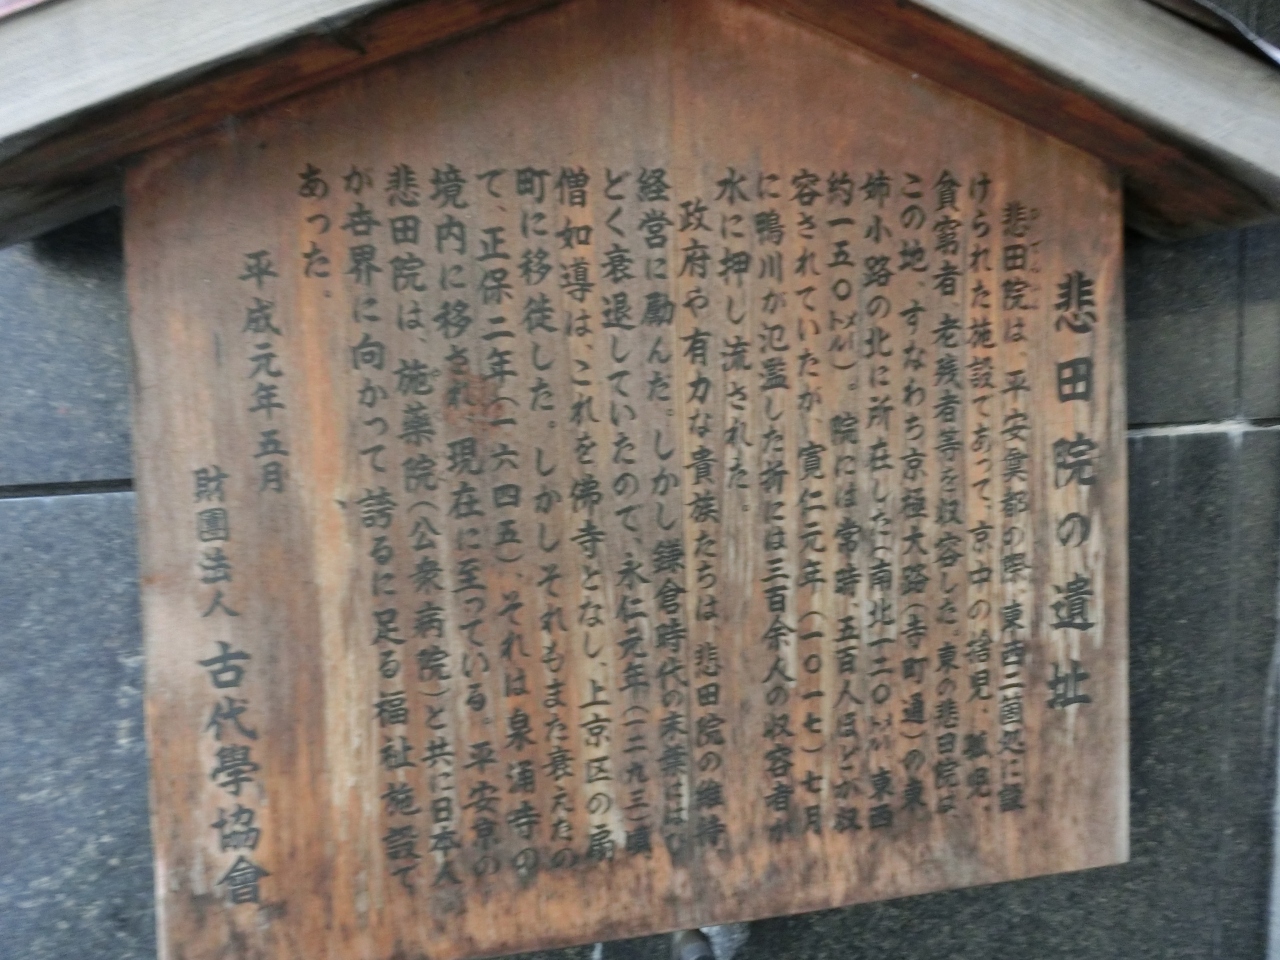 悲田院の遺址
悲田院は、平安奠都の際、東西二箇処に設
けられた施設であって、京中の捨児、孤児、
貧窮者、老残者等を収容した。東の悲田院は、
この地、すなわち京極大路(寺町通)の東
姉小路の北に所在した(南北一二〇メートル 東西
約一五〇メートル)。院には常時、五百人ほどが収
容されていたが、寛仁元年(一〇一七)七月
に鴨川が氾濫した折には三百余人の収容者が
水に押し流された。
政府や有力な貴族たちは、悲田院の維持
経営に励んだ。しかし鎌倉時代の末葉にはひ
どく衰退していたので、永仁元年(一二九三)頃
僧如導は、これを佛寺となし、上京区の扇
町に移徒した。しかしそれもまた衰えたの
で、正保二年(一六四五)、それは泉涌寺の
境内に移され、現在に至っている。平安京の
悲田院は、施薬院(公衆病院)と共に日本人
が世界に向かって誇るに足る福祉施設で
あった。
平成元年五月
財團法人 古代學協會